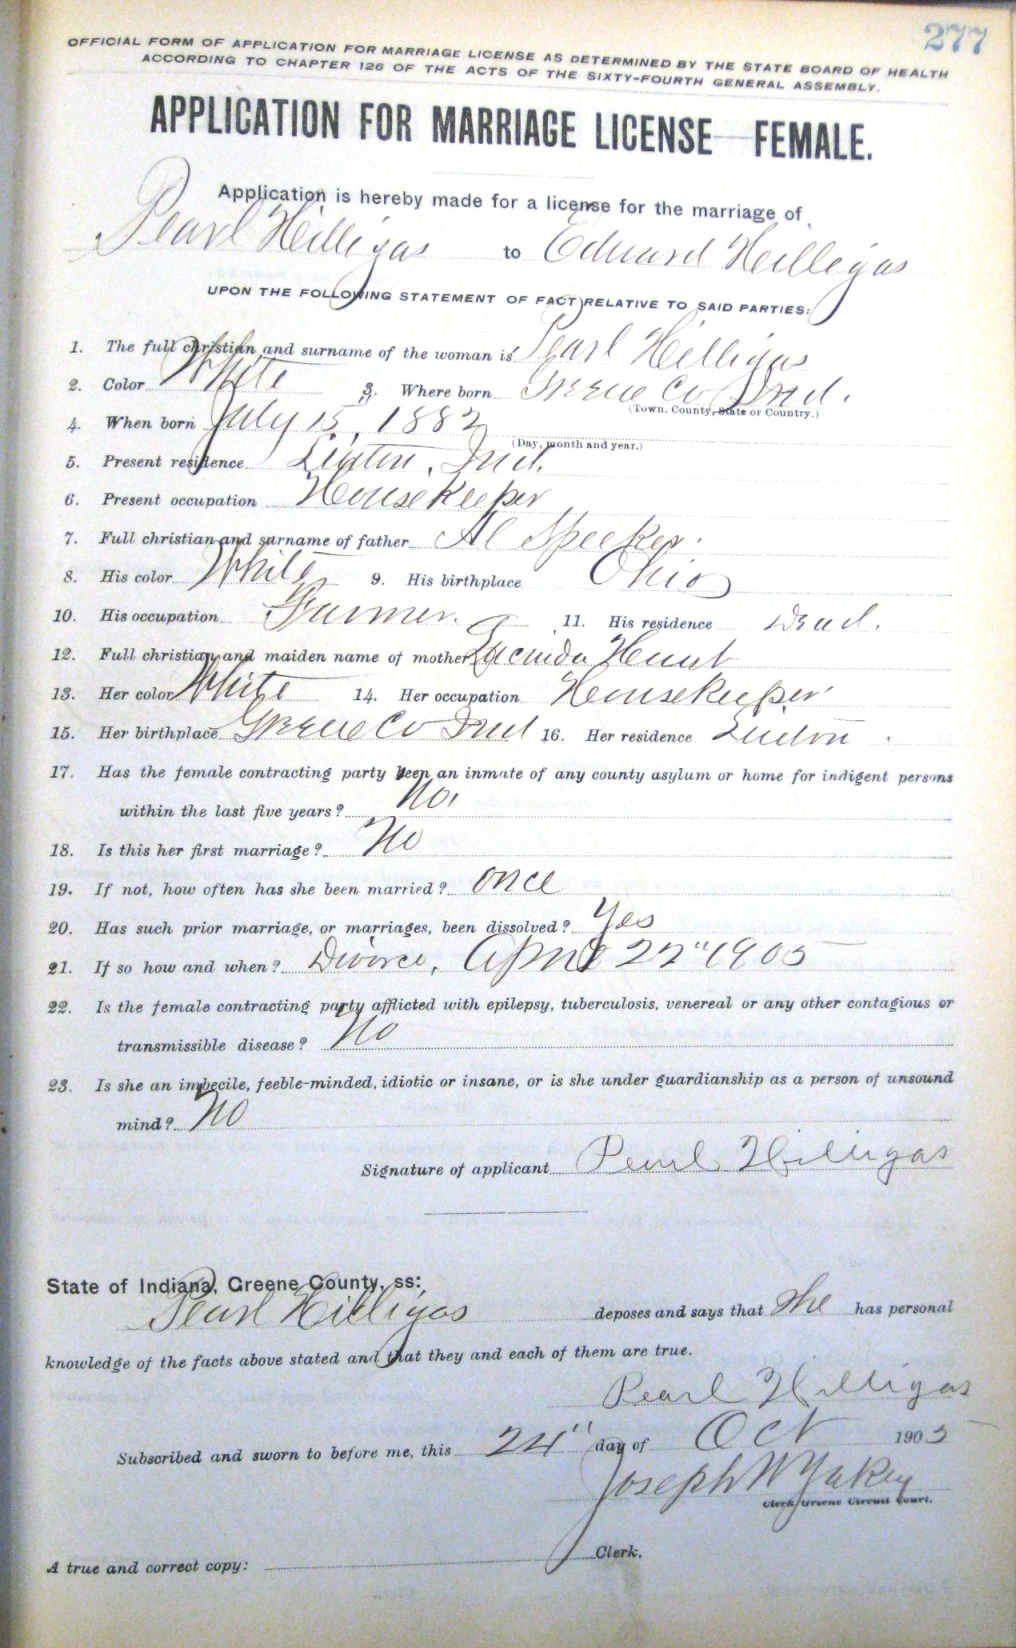 277
OFFICIAL FORM OF APPLICATION FOR MARRIAGE LICENSE AS DETERMINED BY THE STATE BOARD OF HEALTH
ACCORDING TO CHAPTER 126 OF THE ACTS OF THE SIXTY-FOURTH GENERAL ASSEMBLY.
APPLICATION FOR MARRIAGE LICENSE—FEMALE.
Application is hereby made for a license for the marriage of
Pearl Hilligas to Edward Hilligas
UPON THE FOLLOWING STATEMENT OF FACT RELATIVE TO SAID PARTIES:
1. The full christian and surname of the woman is Pearl Hilligas
2. Color White 3. Where born Greene Co Ind.
(Town. County, State or Country.)
4. When born July 15, 1882
(Day, month and year.)
5. Present residence Linton, Ind.
6. Present occupation Housekeeper
7. Full christian and surname of father Al Speeker.
8. His color White 9. His birthplace Ohio
10. His occupation Farmer. 11. His residence Dead.
12. Full christian and maiden name of mother Lucinda Hunt
13. Her color White 14. Her occupation Housekeeper
15. Her birthplace Greene Co Ind 16. Her residence Linton.
17. Has the female contracting party been an inmate of any county asylum or home for indigent persons
within the last five years? No.
18. Is this her first marriage? No
19. If not, how often has she been married? once
20. Has such prior marriage, or marriages, been dissolved? Yes
21. If so how and when? Divorce, April 22" 1905
22. Is the female contracting party afflicted with epilepsy, tuberculosis, venereal or any other contagious or
transmissible disease? No
23. Is she an imbecile, feeble-minded, idiotic or insane, or is she under guardianship as a person of unsound
mind? No
Signature of applicant Pearl Hilligas
State of Indiana, Greene County, ss:
Pearl Hilligas deposes and says that she has personal
knowledge of the facts above stated and that they and each of them are true.
Pearl Hilligas
Subscribed and sworn to before me, this 24" day of Oct 1905
Joseph W Yakey
Clerk Greene Circuit Court.
A true and correct copy: Clerk.